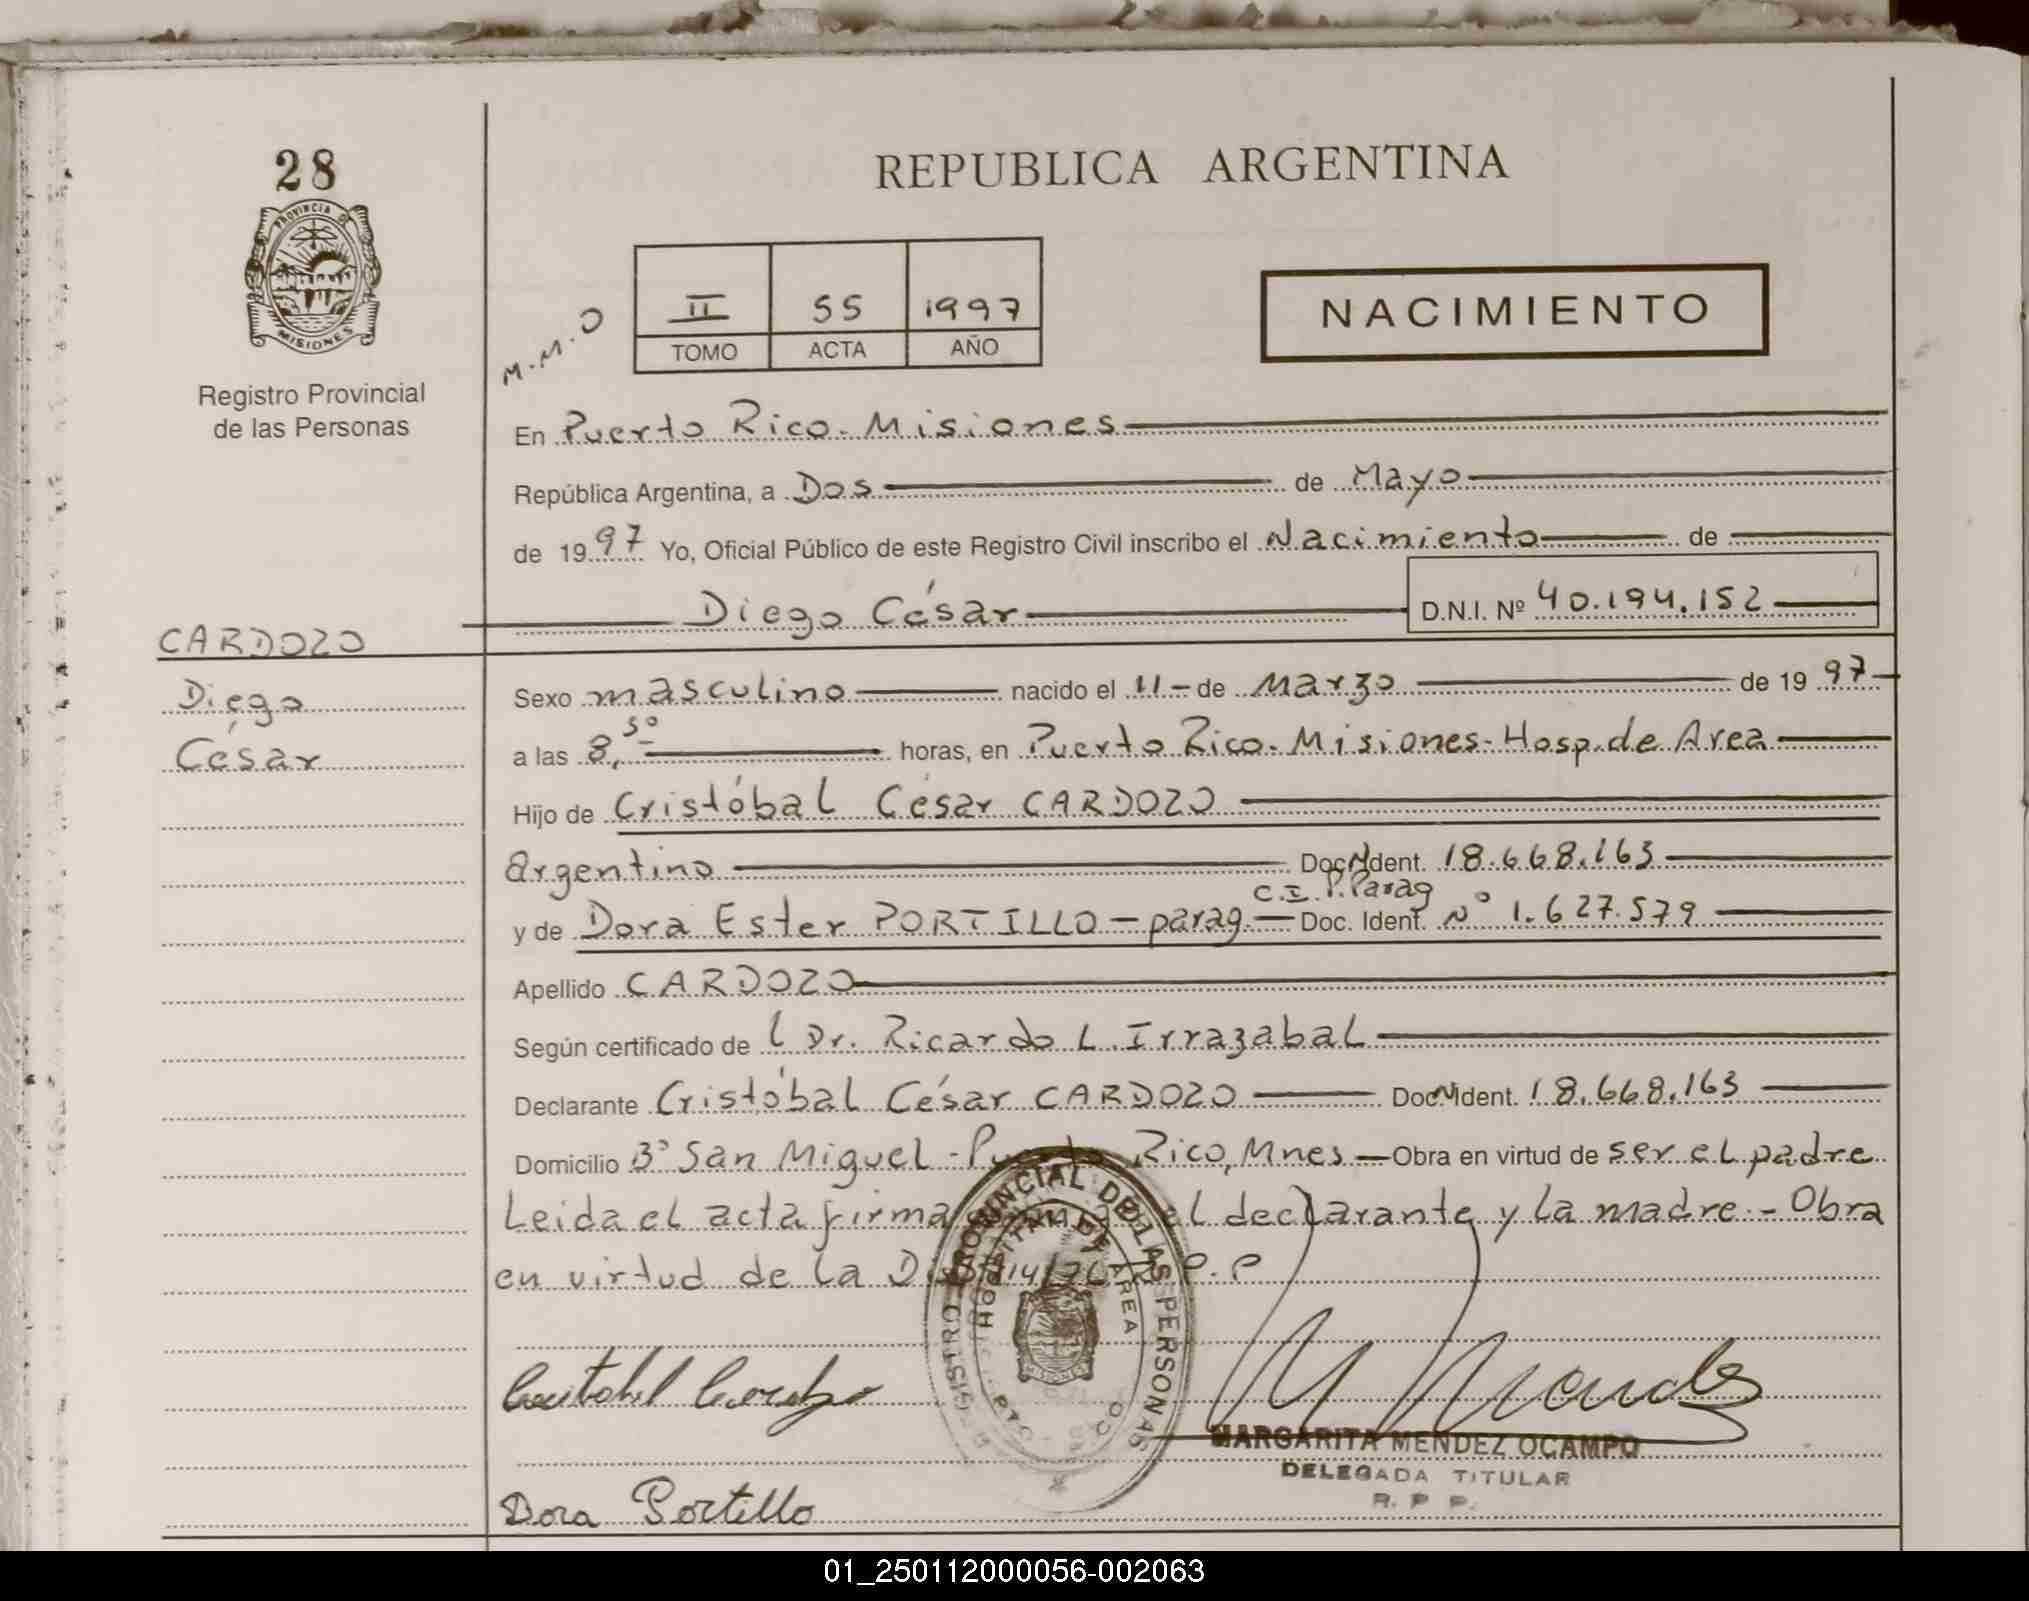 28
PROVINCIA DE
MISIONES
Registro Provincial
de las Personas
REPUBLICA ARGENTINA
M.M.O
II 55 1997
TOMO ACTA AÑO
NACIMIENTO
En Puerto Rico. Misiones
República Argentina, a Dos de Mayo
de 1997 Yo, Oficial Público de este Registro Civil inscribo el Nacimiento de
Diego César D.N.I. Nº 40.194.152
CARDOZO
Diego
César
Sexo masculino nacido el 11 - de Marzo de 1997
a las 8,50 horas, en Puerto Rico. Misiones - Hosp. de Area
Hijo de Cristóbal César CARDOZO
argentino Doc N Ident. 18.668.163
C.I. P. Parag
y de Dora Ester PORTILLO - parag. - Doc. Ident. Nº 1.627.579
Apellido CARDOZO
Según certificado de l Dr. Ricardo L. Irrazabal
Declarante Cristóbal César CARDOZO Doc N Ident. 18.668.163
Domicilio Bº San Miguel - Puerto Rico, Mnes - Obra en virtud de ser el padre
Leida el acta firma el declarante y la madre - Obra
en virtud de la
REGISTRO PROVINCIAL DE LAS PERSONAS
HOSPITAL DE AREA
Cristobal Cardozo
MARGARITA MENDEZ OCAMPO
DELEGADA TITULAR
R. P. P.
Dora Portillo
01_250112000056-002063